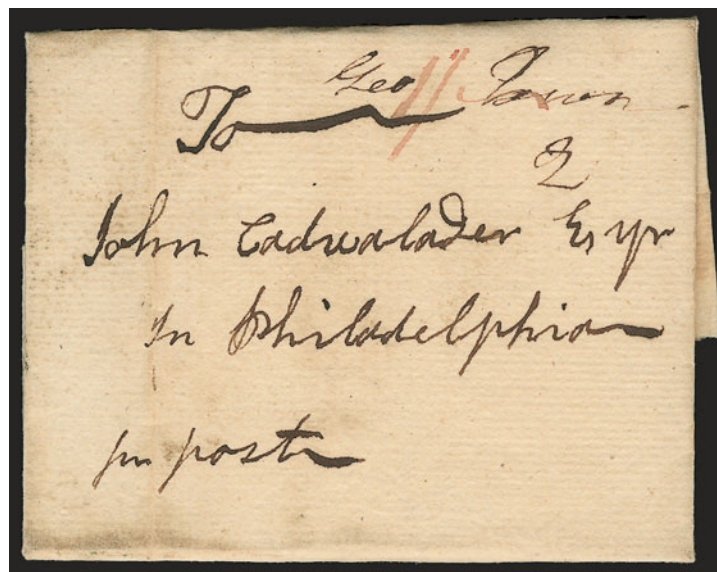 Geo Town
To
2
John Cadwalader Esqr
In Philadelphia
pr post